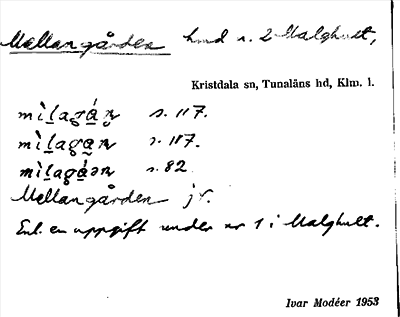 Mellangården hmd n. 2 Malghult,
Kristdala sn, Tunaläns hd, Klm. l.
s. 117.
s. 117.
s. 82
Mellangården jr.
Enl. en uppgift under nr 1 i Malghult.
Ivar Modéer 1953